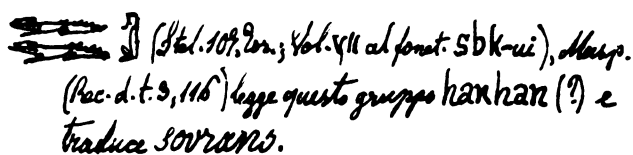 (Stel. 109, Lez.; Vol. VII al fonet. sbk-ui), Masp.
(Rec. d. t. 3, 116) legge questo gruppo hanhan (?) e
traduce sovrano.